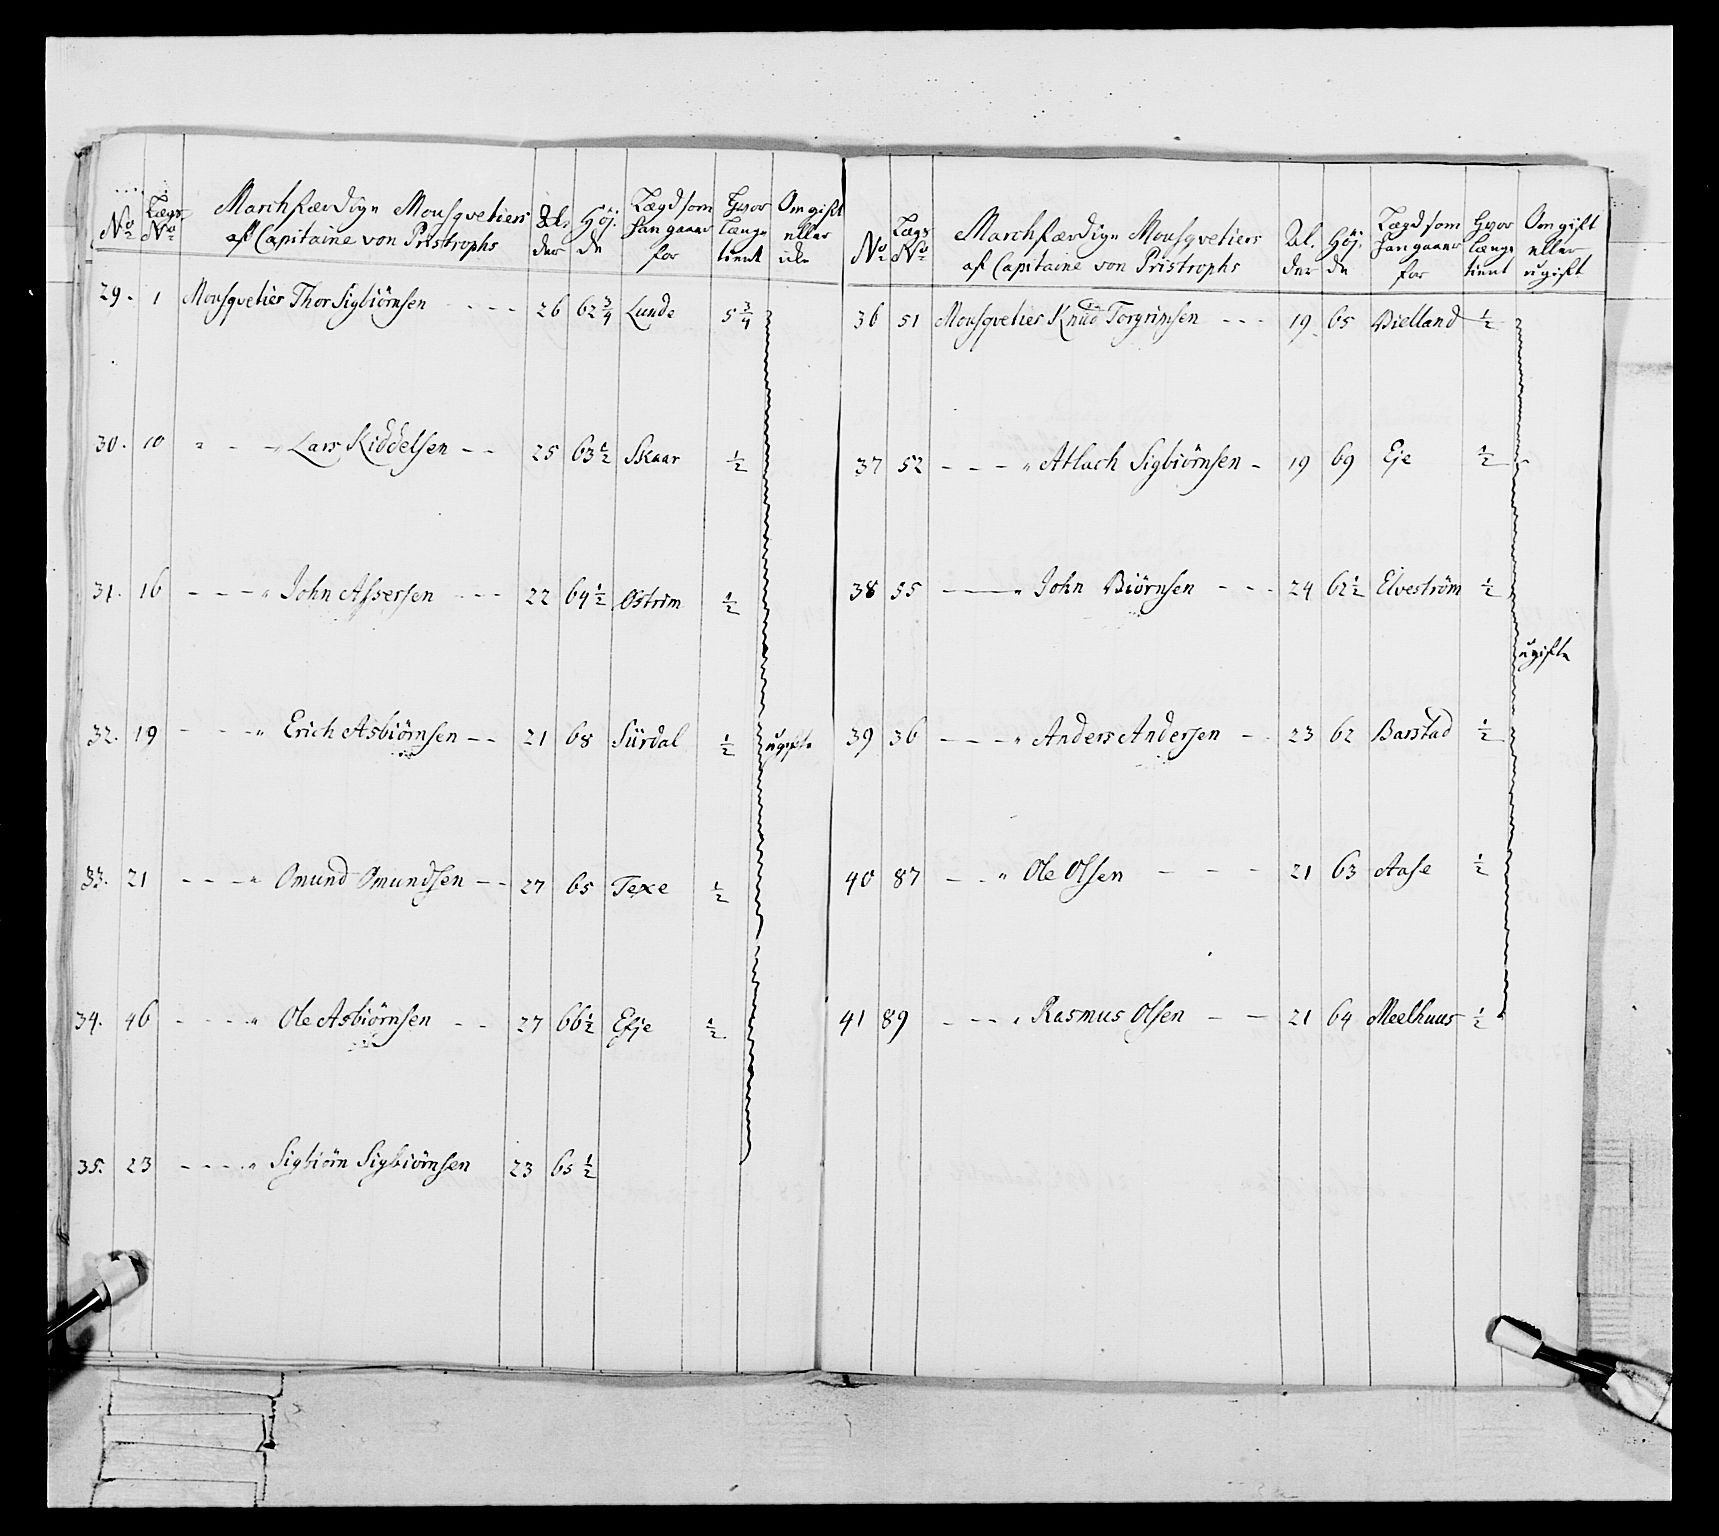 No Lægs No Marchfærdige Mousqvetiers af Capitaine von Pristrophs Al: der Höj: de Lægd som han gaaer for Hvor længe tient Om gift eller ide
29. 1 Mousqvetier Thor Sigbiörnsen - - - 26 62 3/4 Lunde 5 3/4
30. 10 " - - " Lars Kiddelsen - - 25 63 1/2 Skaar 1/2
31. 16 - - - " John Assersen - - - 22 64 1/2 Ostrim 1/2
32. 19 - - - " Erich Asbiörnsen - - 21 68 Sürdal 1/2 ugifte
33. 21 - - - " Omund Omundsen - - 27 65 Texe 1/2
34. 46 - - - " Ole Asbiörnsen - - 27 66 1/2 Efje 1/2
35. 23 - - - " Sigbiörn Sigbiörnsen 23 65 1/2
No Lægs No Marchfærdige Mousqvetiers af Capitaine von Pristrophs Al: der Höj: de Lægd som han gaaer for Hvor længe tient Om gift eller ugift
36 51 Mousqvetier Knud Torgrimsen - - - 19 65 Bielland 1/2
37 52 - - - " Atlach Sigbiörnsen - 19 69 Eje 1/2
38 55 - - - " John Biörnsen - - - 24 62 1/2 Elveström 1/2
ugifte
39 36 - - - " Anders Andersen - 23 62 Barstad 1/2
40 87 - - " Ole Olsen - - - 21 63 Aase 1/2
41 89 - - - " Rasmus Olsen - - 21 64 Meelhuus 1/2